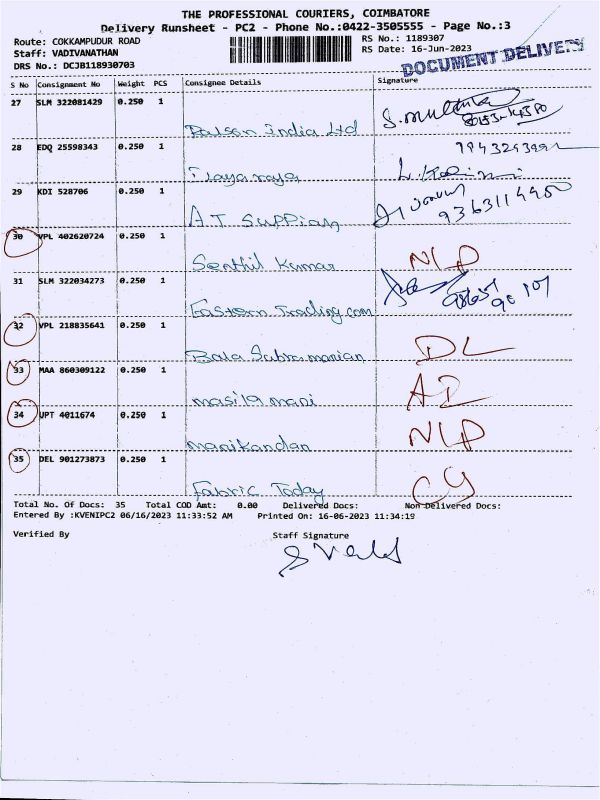 THE PROFESSIONAL COURIERS, COIMBATORE
Delivery Runsheet - PC2 - Phone No.:0422-3505555 - Page No.:3
Route: COKKAMPUDUR ROAD RS No.: 1189307
Staff: VADIVANATHAN RS Date: 16-Jun-2023
DRS No.: DCJB118930703 DOCUMENT DELIVERY
S No Consignment No Weight PCS Consignee Details Signature
27 SLM 322081429 0.250 1
Balson India Ltd
28 EDQ 25598343 0.250 1
Vijayaraja
29 KDI 528706 0.250 1
A.T Suppiah 9363114950
30 VPL 402620724 0.250 1
Senthil Kumar NLP
31 SLM 322034273 0.250 1
Eastern Trading.com
32 VPL 218835641 0.250 1
Bala Subramanian DL
33 MAA 860309122 0.250 1
masila mani AD
34 UPT 4011674 0.250 1
manikandan NLP
35 DEL 901273873 0.250 1
Fabric Today Cg
Total No. Of Docs: 35 Total COD Amt: 0.00 Delivered Docs: Non Delivered Docs:
Entered By :KVENIPC2 06/16/2023 11:33:52 AM Printed On: 16-06-2023 11:34:19
Verified By Staff Signature